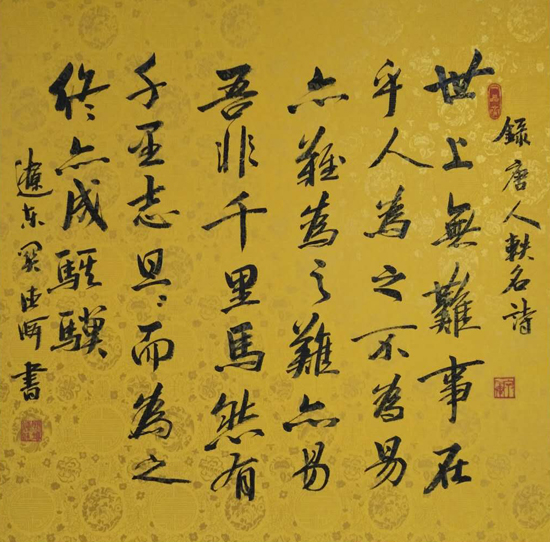 錄唐人軼名詩
世上無難事在
乎人為之不為易
亦難為之難亦易
吾非千里馬然有
千里志旦〻而為之
終亦成騏驥
遼東書